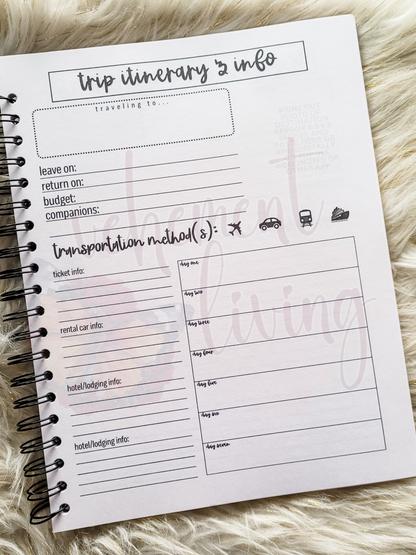 trip itinerary & info
traveling to...
leave on:
return on:
budget:
companions:
transportation method(s):
ticket info:
rental car info:
hotel/lodging info:
hotel/lodging info:
day one
day two
day three
day four
day five
day six
day seven
vehement
living